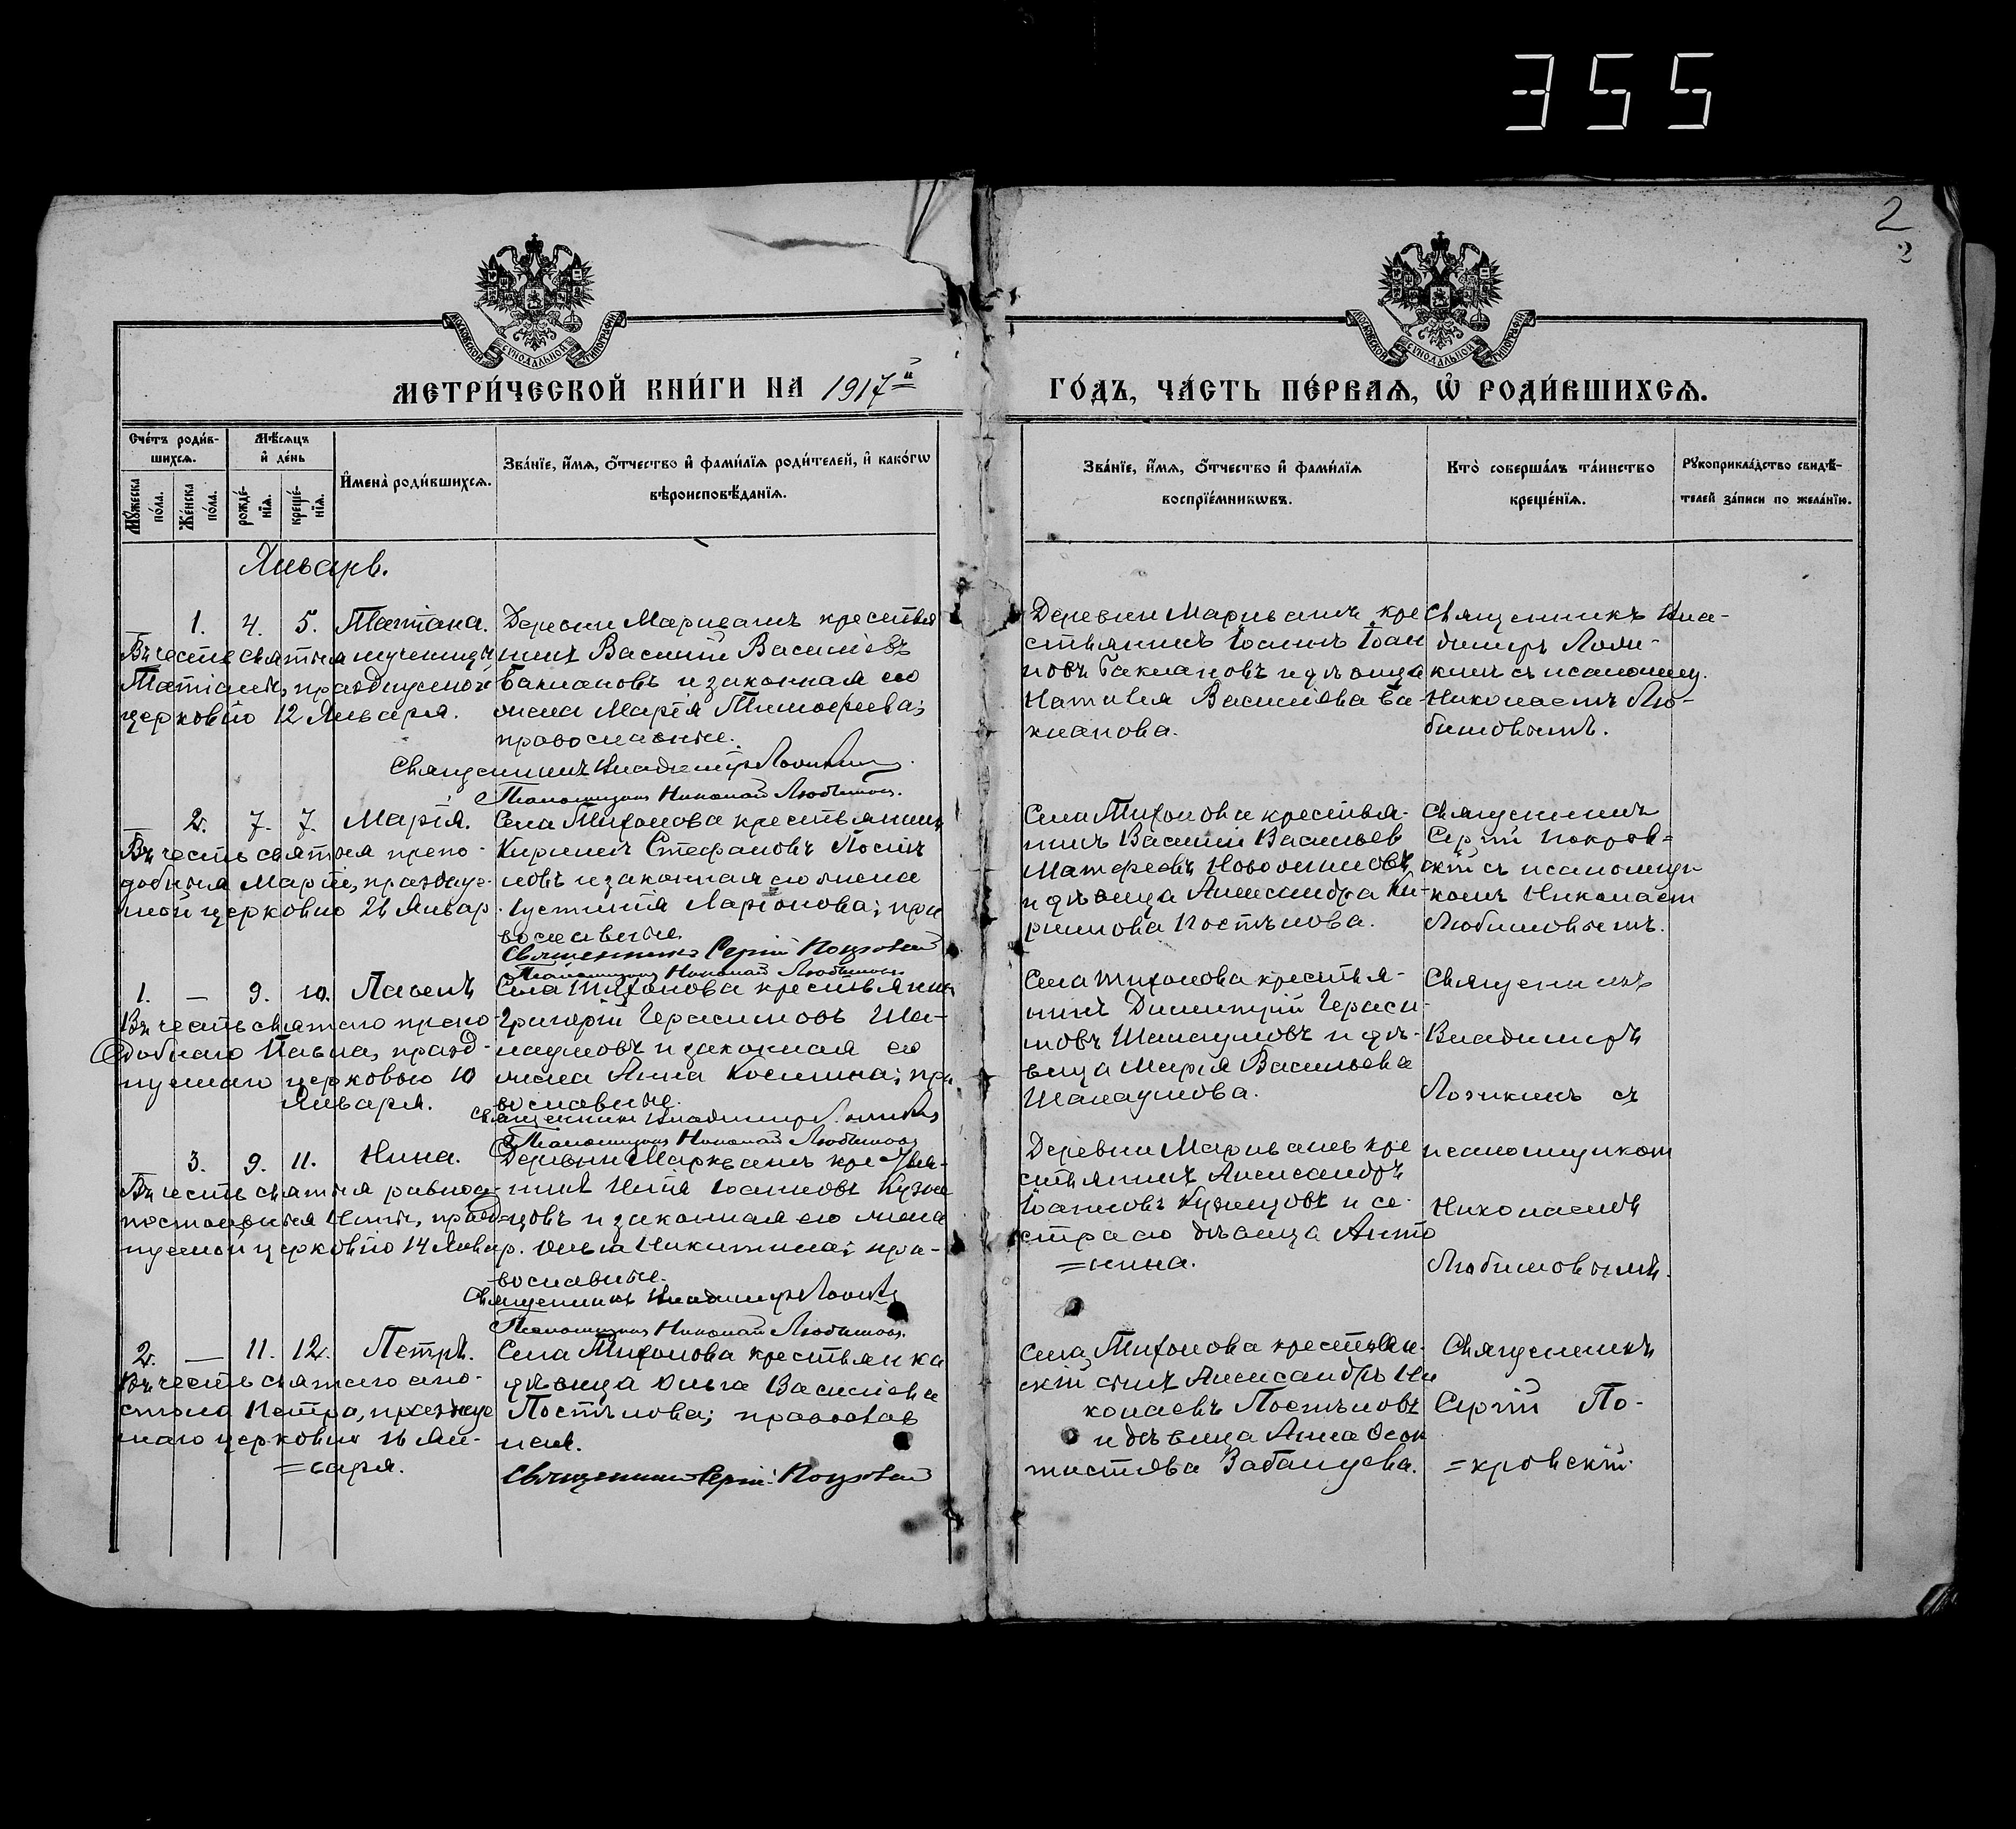 355
2
2
МОСКОВСКОЙ СѴНОДАЛЬНОЙ ТИПОГРАФІИ
МОСКОВСКОЙ СѴНОДАЛЬНОЙ ТИПОГРАФІИ
МЕТРИ́ЧЕСКОЙ КНИ́ГИ НА 1917й
ГО́ДЪ, ЧА́СТЬ ПЕ́РВАѦ, Ѡ҆ РОДИ́ВШИХСѦ.
Сче́тъ роди́в-
шихсѧ.
Мѣ́сѧцъ
и҆ де́нь
Мꙋ́жеска
по́ла.
Же́нска
по́ла.
рожде́-
нїѧ.
креще́-
нїѧ.
И҆мена̀ роди́вшихсѧ.
Зва́нїе, и҆́мѧ, ѻ҆́тчество и҆ фами́лїѧ роди́телей, и҆ како́гѡ
вѣроисповѣ́данїѧ.
Зва́нїе, и҆́мѧ, ѻ҆́тчество и҆ фами́лїѧ
воспрїе́мникѡвъ.
Кто̀ соверша́лъ та́инство
креще́нїѧ.
Рꙋкоприкла́дство свидѣ́-
телей за́писи по жела́нїю.
Январь.
— 1. 4. 5. Татіана.
Въ честь святыя мученицы
Татіаны, празднуемой
церковію 12 Января.
Деревни Марквашъ крестья
нинъ Василій Василіевъ
Бакланов и законная его
жена Марія Тимофеева;
православные.
Священникъ Владимір
Псаломщикъ Николай Любимовъ.
Деревни Марквашъ кре
стьянинъ Іоаннъ Іоан
новъ Баклановъ и дѣвица
Наталія Василіева Ба-
кланова.
Священникъ Вла-
димиръ
съ псаломщ.
Николаемъ Лю-
бимовымъ.
— 2. 7. 7. Марія.
Въ честь святыя препо-
добныя Маріи, праздуе-
мой церковію 26 Январ
Села Тихонова крестьянинъ
Кириллъ Стефановъ Постѣ
ловъ и законная его жена
Іустинія Ларіонова; пра
вославные.
Священникъ Сергій Покровскій
Псаломщикъ Николай Любимовъ.
Села Тихонова крестья-
нинъ Василій Васильев
Матфеевъ
и дѣвица Александра Ки-
рилова Постѣлова.
Священникъ
Сергій Покров=
скій съ псаломщи
комъ Николаем
Любимовымъ.
1. — 9. 10. Павелъ
Въ честь святаго препо
добнаго Павла, празд-
нуемаго церковью 10
Января.
Села Тихонова крестьянинъ
Григорій Герасимовъ Ша-
лауновъ и законная его
жена Анна Космина; пра
вославные.
Священникъ Владимиръ
Псаломщикъ Николай Любимовъ
Села Тихонова крестья-
нинъ Димитрій Гераси
мовъ Шалауновъ и дѣ-
вица Марія Васильева
Шалаунова.
Священникъ
Владимиръ
съ
псаломщиком
Николаемъ
Любимовымъ.
— 3. 9. 11. Нина.
Въ честь святыя равноа-
постольныя Нины, празд
нуемой церковію 14 Январ.
Деревни Марквашъ крестья-
нинъ Илія Іоанновъ Кузне
цовъ и законная его жена
Ольга Никитина; пра-
вославные.
Священникъ Владимиръ
Псаломщикъ Николай Любимовъ.
Деревни Марквашъ кре
стьянинъ Александръ
Іоанновъ Кузнецовъ и се-
стра его дѣвица Анто
=нина.
2. — 11. 12. Петръ.
Въ честь святаго апо-
стола Петра, празднуе
маго церковію 16 Ян-
=варя.
Села Тихонова крестьянка
дѣвица Ольга Василіева
Постѣлова; православ
ная.
Священникъ Сергій Покровскій
Села Тихонова крестьян-
скій сынъ Александръ Ни
колаевъ Постѣловъ
и дѣвица Анна
Забалуева.
Священникъ
Сергій По-
=кровскій.